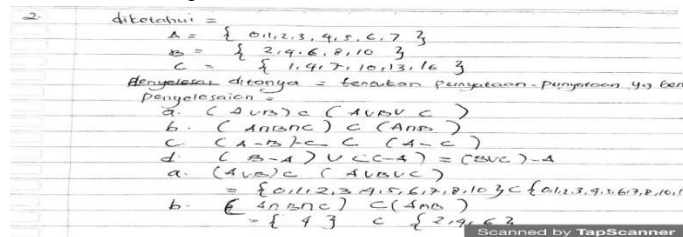 2. diketahui =
A = { 0,1,2,3,4,5,6,7 }
B = { 2,4,6,8,10 }
C = { 1,4,7,10,13,16 }
ditanya = tentukan punyataan-punyataan yg ben
penyelesaian =
a. (AUB) C (AUBUC)
b. (ANBNC) C (ANB)
C. (A-B)-C C (A-C)
d. (B-A) U (C-A) = (BUC)-A
a. (AUB) C (AUBUC)
= {0,1,2,3,4,5,6,7,8,10} C {0,1,2,3,4,5,6,7,8,10,1
b. (ANBNC) C (ANB)
= { 4 } C { 2,4,6 }
Scanned by TapScanner